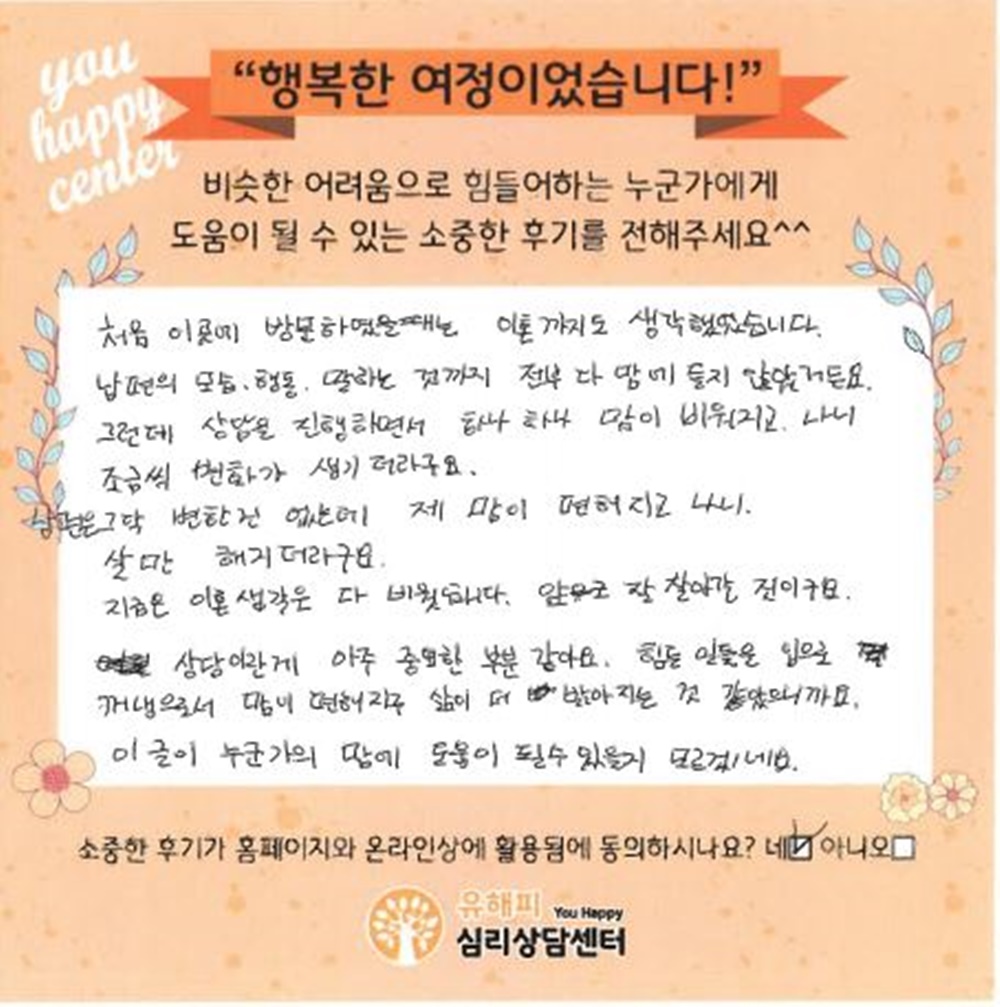 you
happy
center
“행복한 여정이었습니다!”
비슷한 어려움으로 힘들어하는 누군가에게
도움이 될 수 있는 소중한 후기를 전해주세요^^
처음 이곳에 방문하였을때는 이혼까지도 생각했었습니다.
남편의 모습, 행동, 말하는 것까지 전부 다 맘에 들지 않았거든요.
그런데 상담을 진행하면서 하나 하나 맘이 비워지고 나니
조금씩 변화가 생기더라구요.
남편은 그닥 변한건 없는데 제 맘이 편해지고 나니.
살만 해지더라구요.
지금은 이혼생각은 다 비웠습니다. 앞으로 잘 살아갈 건이구요.
상담이란게 아주 중요한 부분 같아요. 힘든 일들을 입으로
꺼냄으로서 맘이 편해지구 삶이 더 밝아지는 것 같았으니까요.
이 글이 누군가의 맘에 도움이 될수 있을지 모르겠네요.
소중한 후기가 홈페이지와 온라인상에 활용됨에 동의하시나요? 네 아니오
유해피 You Happy
심리상담센터